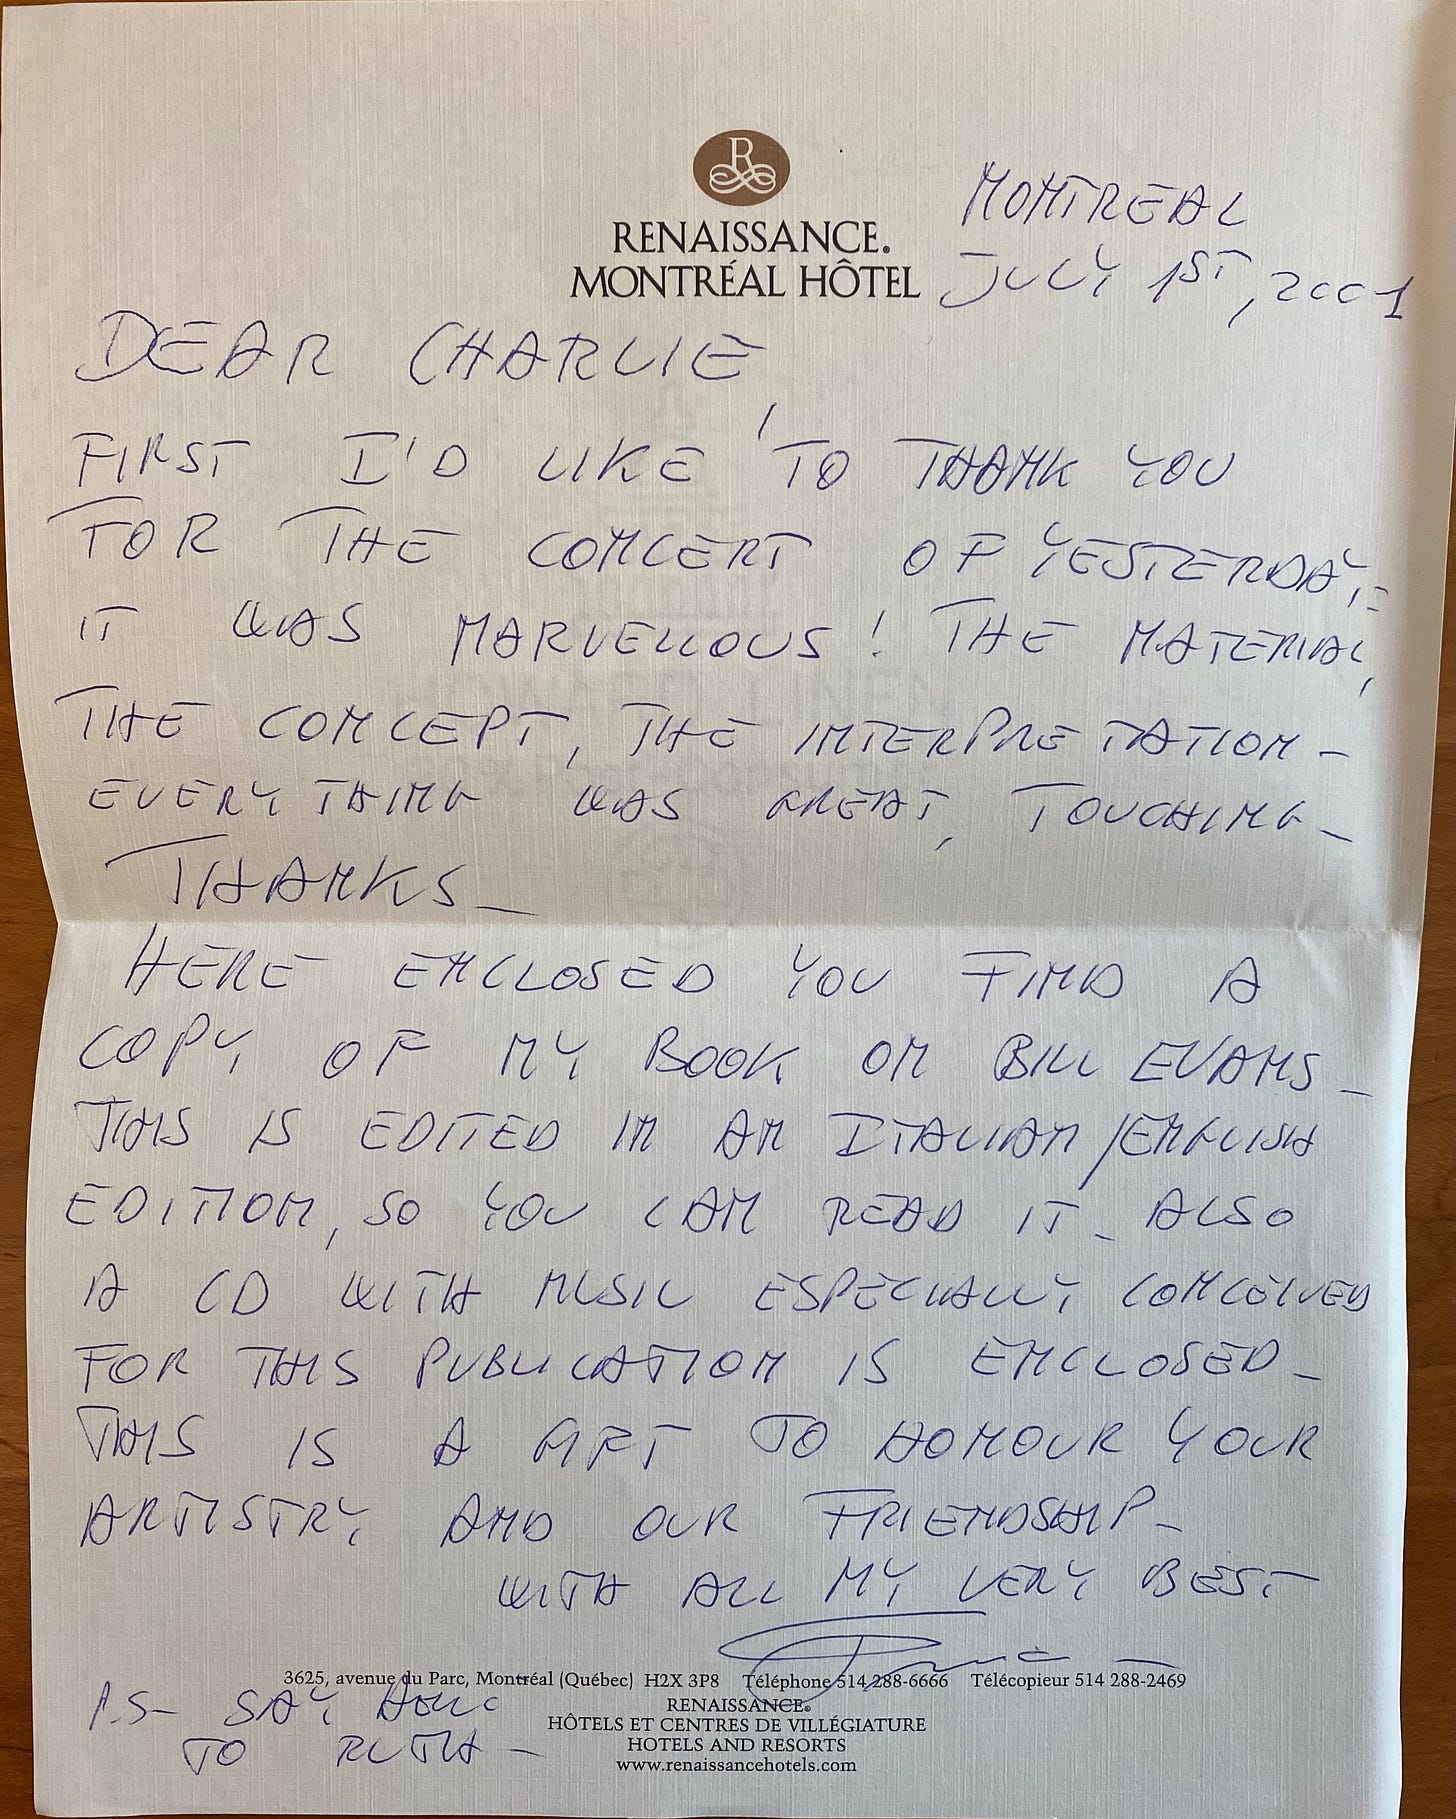 R
RENAISSANCE®
MONTRÉAL HÔTEL
MONTREAL
JULY 1ST, 2001
DEAR CHARLIE,
FIRST I'D LIKE TO THANK YOU
FOR THE CONCERT OF YESTERDAY:
IT WAS MARVELLOUS! THE MATERIAL,
THE CONCEPT, THE INTERPRETATION –
EVERYTHING WAS GREAT, TOUCHING –
THANKS –
HERE ENCLOSED YOU FIND A
COPY OF MY BOOK ON BILL EVANS –
THIS IS EDITED IN AN ITALIAN/ENGLISH
EDITION, SO YOU CAN READ IT – ALSO
A CD WITH MUSIC ESPECIALLY CONCEIVED
FOR THIS PUBLICATION IS ENCLOSED –
THIS IS A GIFT TO HONOUR YOUR
ARTISTRY AND OUR FRIENDSHIP –
WITH ALL MY VERY BEST
3625, avenue du Parc, Montréal (Québec) H2X 3P8 Téléphone 514 288-6666 Télécopieur 514 288-2469
RENAISSANCE®
HÔTELS ET CENTRES DE VILLÉGIATURE
HOTELS AND RESORTS
www.renaissancehotels.com
P.S – SAY HELLO
TO RUTH –